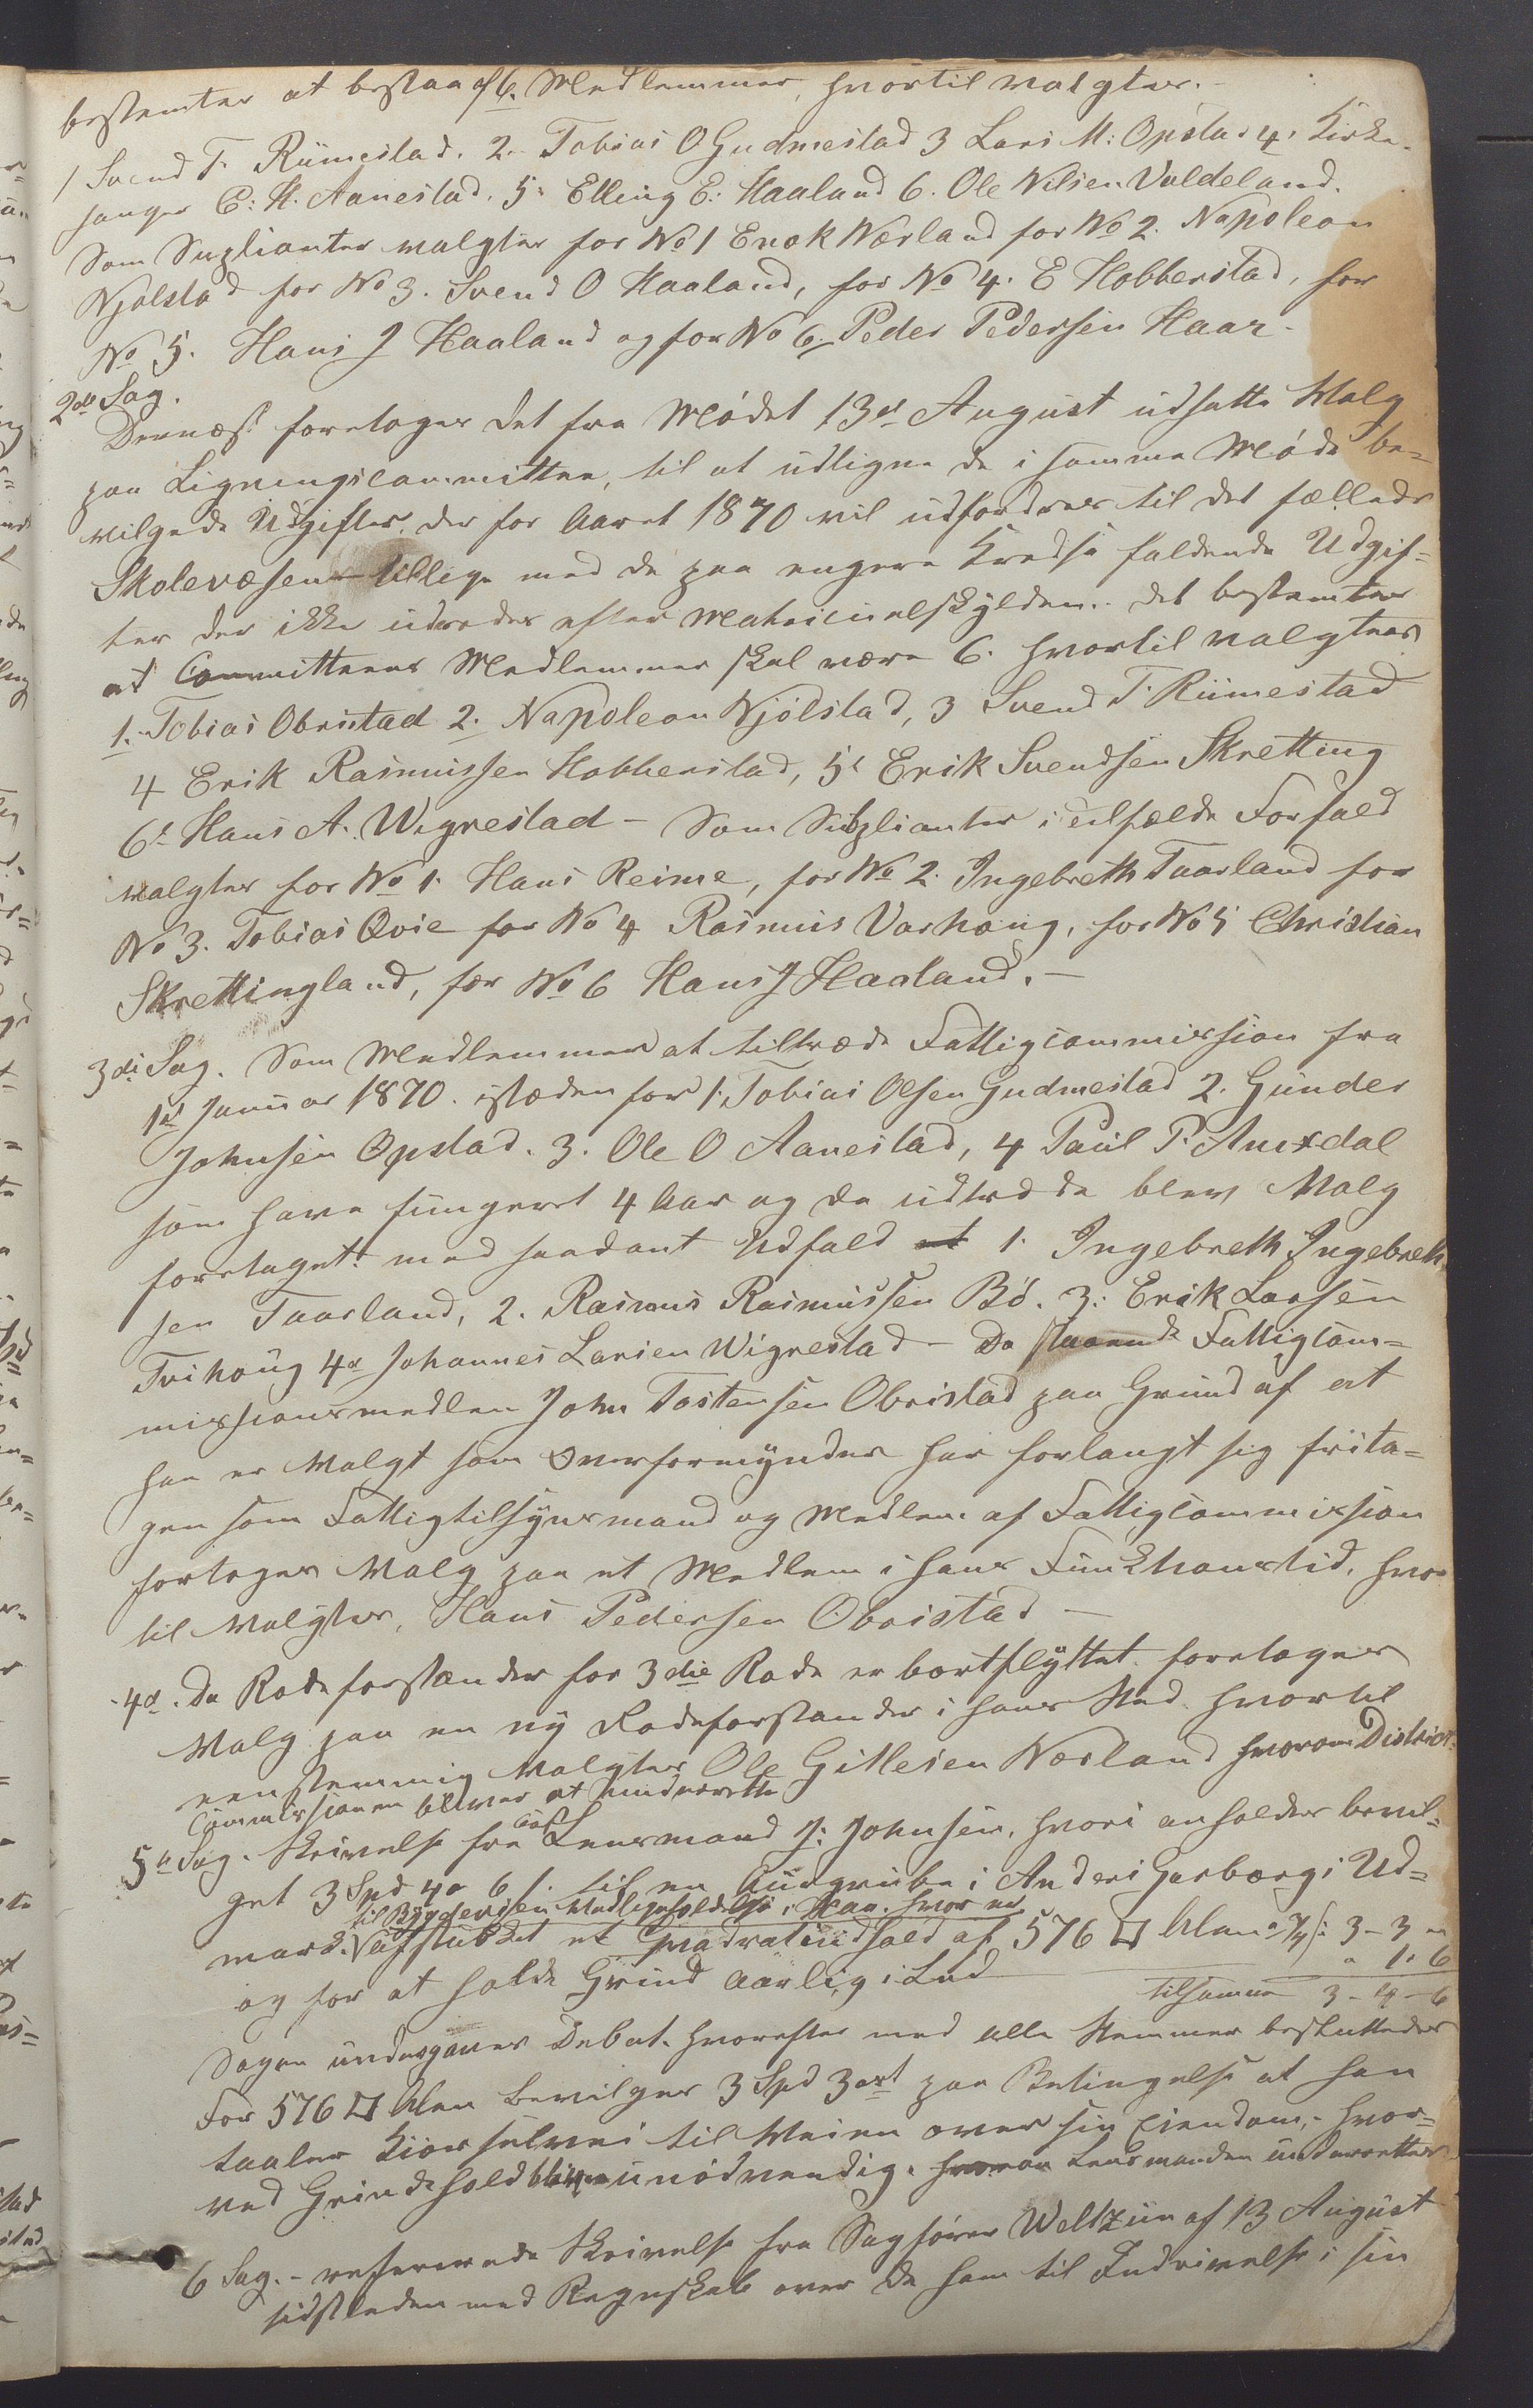 bestemtes at bestaa af 6. Medlemmer, hvortil valgtes.
1 Svend T. Riimestad. 2. Tobias O Gudmestad 3 Lars M: Opstad 4. Kirke-
sanger C: H. Aanestad. 5. Elling E: Haaland 6. Ole Nilsen Valdeland.
Som Suplianter valgtes for No 1 Enok Nærland for No 2. Napoleon
Njølstad for No 3. Svend O Haaland, for No 4. E Hobberstad, for
No 5. Hans J Haaland og for No 6. Peder Pedersen Haar.
2den Sag.
Dernæst foretoges det fra Mødet 13de August udsatte Valg
paa Ligningscommittee, til at udligne de i samme Møde be=
vilgede Udgifter, der for Aaret 1870 vil udfordres til det fælleds
Skolevæsen tillige med de paa engere Kredse faldende Udgif=
ter der ikke udredes efter Matriculskylden.. det bestemtes
at Committeens Medlemmer skal være 6. hvortil valgtes
1. Tobias Obrestad 2. Napoleon Njølstad, 3 Svend T. Riimestad
4 Erik Rasmussen Hobberstad, 5. Erik Svendsen Skretting
6. Hans A. Wigrestad – Som Suplianter i tilfælde Forfald
valgtes for No 1. Hans Reime, for No 2. Ingebreth Taarland for
No 3. Tobias Qvie for No 4 Rasmus Varhoug, for No 5 Christian
Skrettingland, for No 6 Hans J Haaland. –
3die Sag. Som Medlemmer at tiltræde Fattigcommission fra
1ste Januar 1870. isteden for 1. Tobias Olsen Gudmestad 2. Gunder
Johnsen Opstad. 3. Ole O Aanestad, 4 Paul P. Auesdal
som have fungeret 4 Aar og da udtrædde blev Valg
foretaget med saadant Udfald at 1. Ingebreth Ingebreth
sen Taarland, 2. Rasmus Rasmussen Bø. 3: Erik Larsen
Tvihoug 4de Johannes Larsen Wigrestad – Da Fattigcom=
missionsmedlem John Tostensen Obrestad paa Grund af at
han er Valgt som Overformynder har forlangt sig frita=
gen som Fattigtilsynsmand og Medlem af Fattigcommission
fortoges Valg paa et Medlem i hans Funktionstid, hvor
til Valgtes, Hans Pedersen Obrestad –
4de. Da Rodeforstander for 3die Rode er bortflyttet foretoges
Valg paa en ny Rodeforstander i hans Sted hvortil
eenstemmig Valgtes Ole Gitlesen Nærland hvorom District
Commissionen bliver at underrette
5te Sag. Skrivelse fra Lensmand J: Johnsen, hvori anholdes bevil=
get 3 Spd 4 6 til en Gruusgrube i Anders Garborgs Ud=
mark. til Bygdeveien Vedligeholdelse i Haar. hvor er
afstukket et Qvadratindhold af 576 □ Alen 3 – 3
og for at holde Grind aarlig i Led 1. 6
tilsammen 3 – 4 – 6
Sagen undergaves Debat. hvorefter med alle Stemmer besluttedes
For 576 □ Alen bevilges 3 Spd 3 ort paa Betingelse at han
taaler Kiørselvei til Veien over sin Eiendom,. hvor=
ved Grindehold bliver unødvendig. hvorom Lensmanden underrettes
6 Sag. – refereredes Skrivelse fra Sagfører Weltzin af 13 August
sidstleden med Regnskab over de ham til Inddrivelse i sin